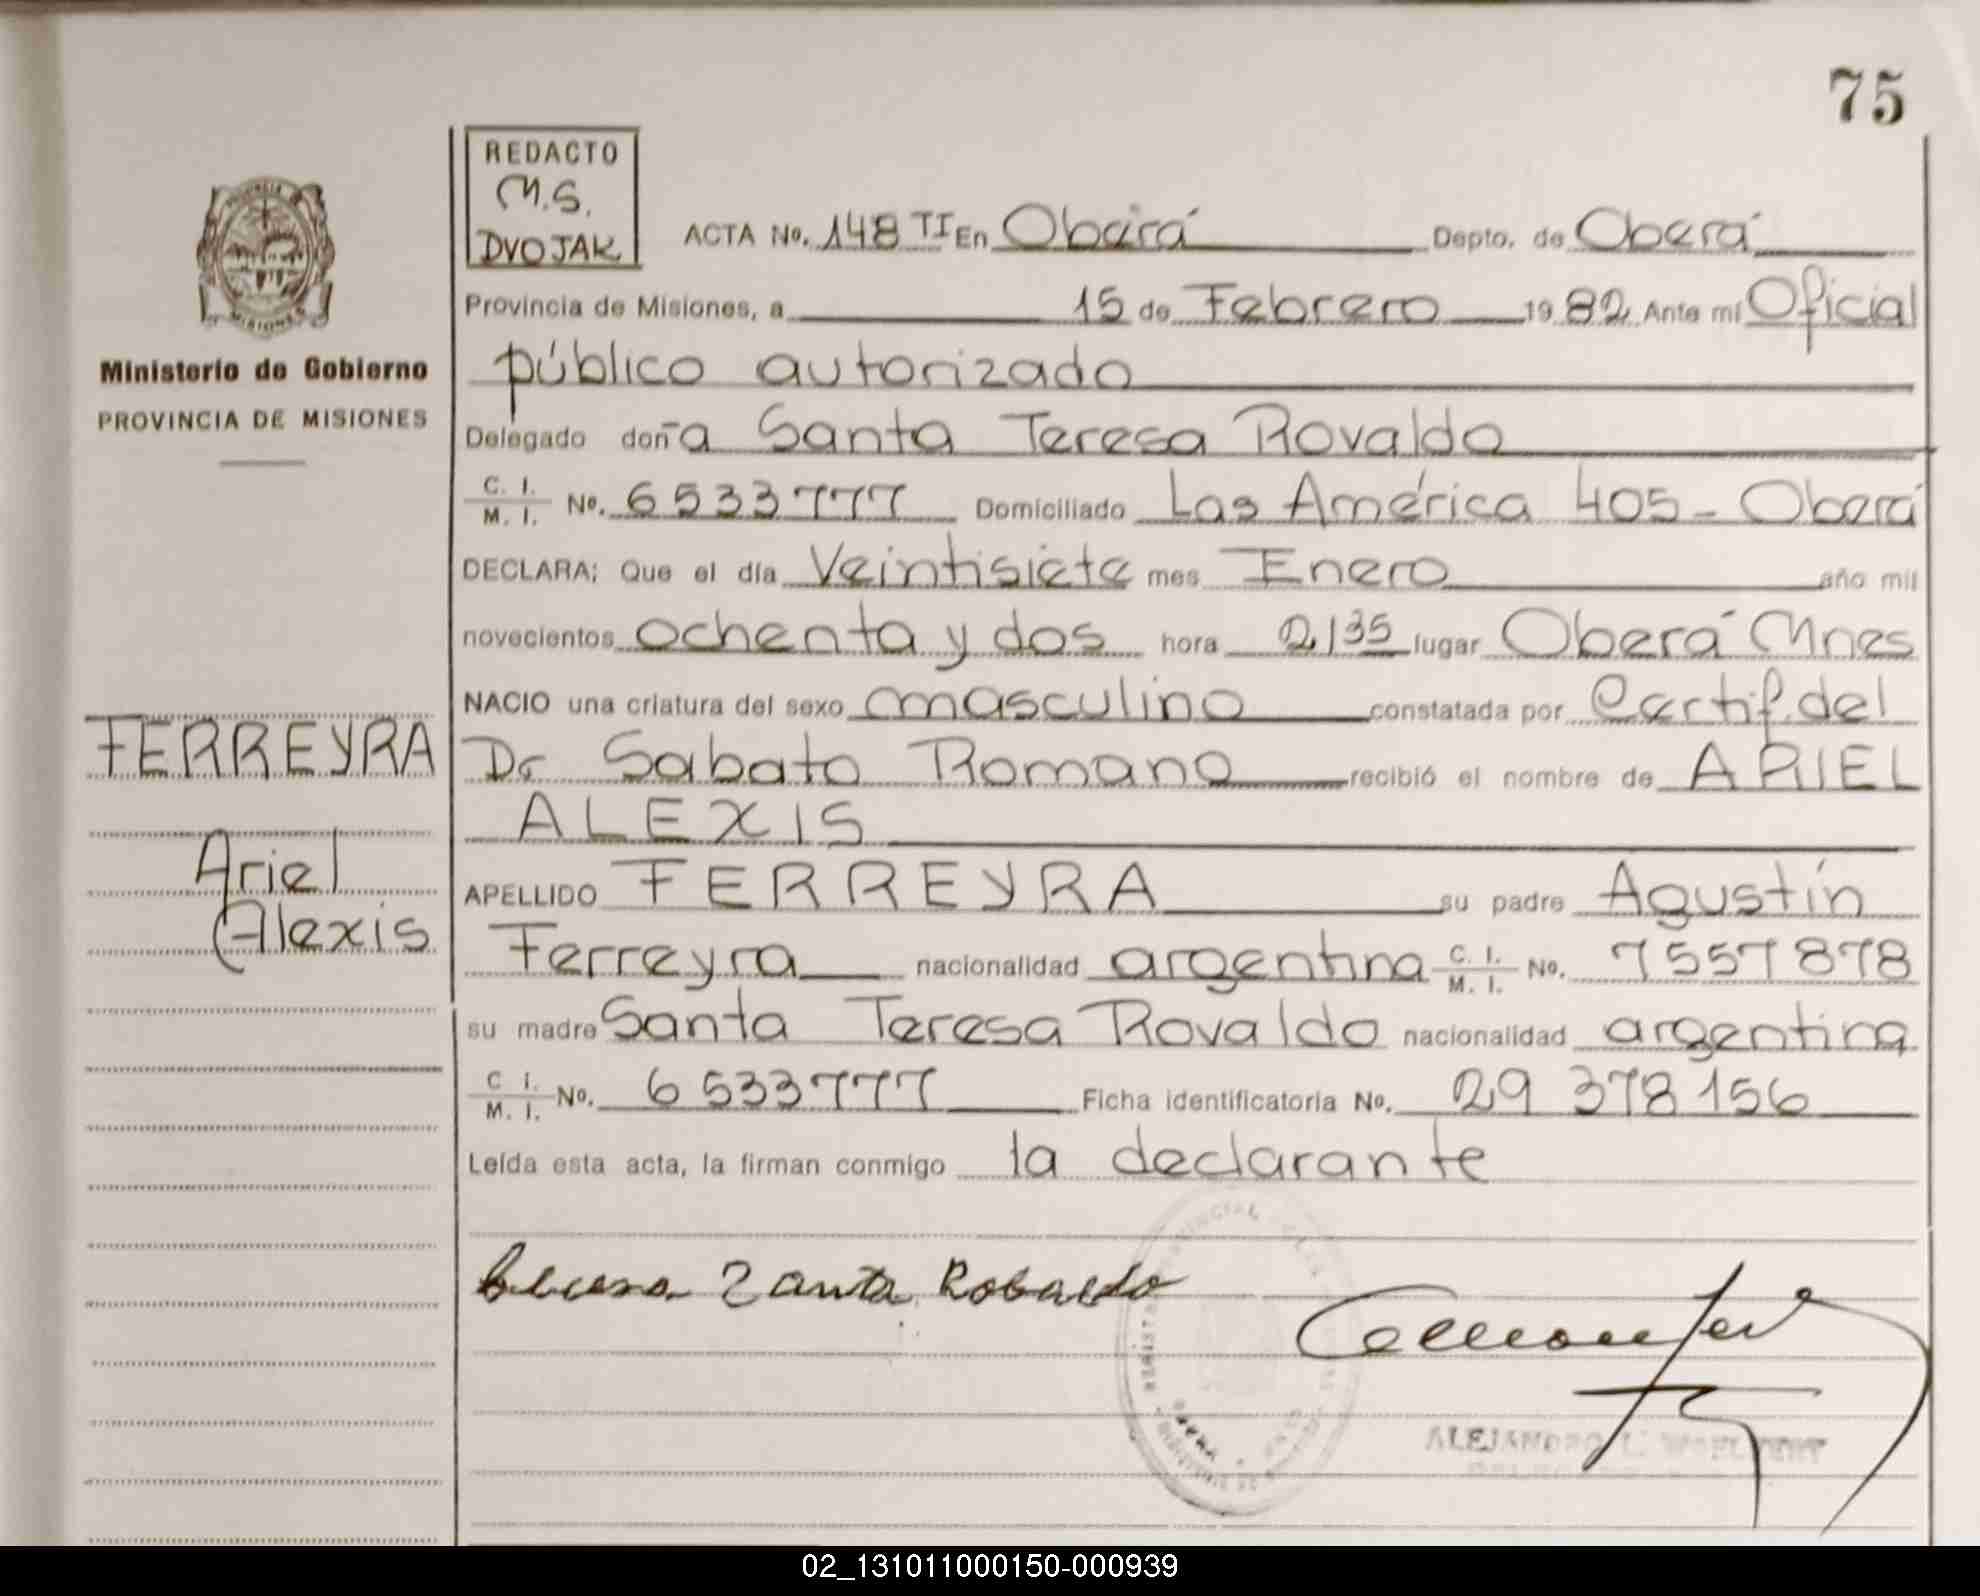 75
REDACTO
M.S.
DVOJAK
ACTA No. 148 TI En Oberá Depto. de Oberá
Provincia de Misiones, a 15 de Febrero 1982 Ante mí Oficial
público autorizado
Delegado doña Santa Teresa Rovaldo
C. I. M. I. No. 6533777 Domiciliado Las América 405 - Oberá
DECLARA; Que el día Veintisiete mes Enero año mil
novecientos ochenta y dos hora 2,35 lugar Oberá Mnes
NACIO una criatura del sexo masculino constatada por Certif. del
Dr Sabato Romano recibió el nombre de ARIEL
ALEXIS
APELLIDO FERREYRA su padre Agustín
Ferreyra nacionalidad argentina C. I. M. I. No. 7557878
su madre Santa Teresa Rovaldo nacionalidad argentina
C I. M. I. No. 6533777 Ficha identificatoria No. 29 378156
Leída esta acta, la firman conmigo la declarante
Ministerio de Gobierno
PROVINCIA DE MISIONES
MISIONES
FERREYRA
Ariel
Alexis
Santa Robaldo
ALEJANDRO L.
02_131011000150-000939